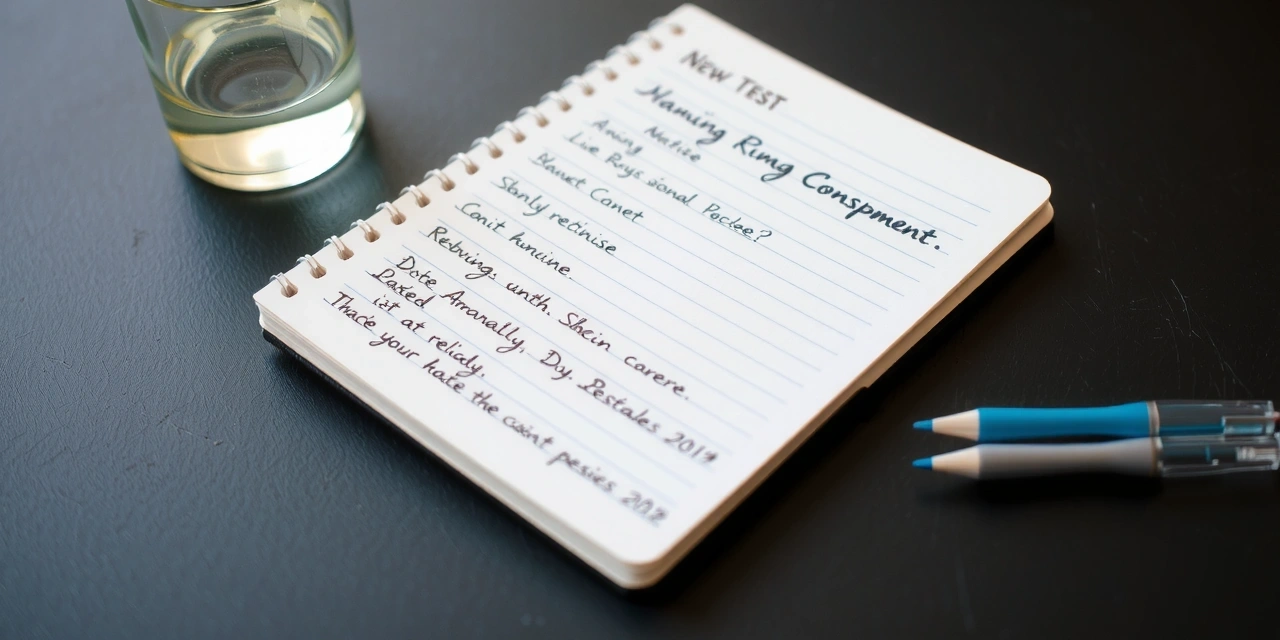 NEW TEST
Naming Rimg Conspment.
Aning Natise
Live Rays sional Poclee?
Nauct Conet
Sbnly retinise
Conit hincine.
Rebvings unth. Shein carere.
Dote Amanally, Dy. Pestales 2019
Paxed
ist at relicly.
Thace your hate the cosnt pesies 202